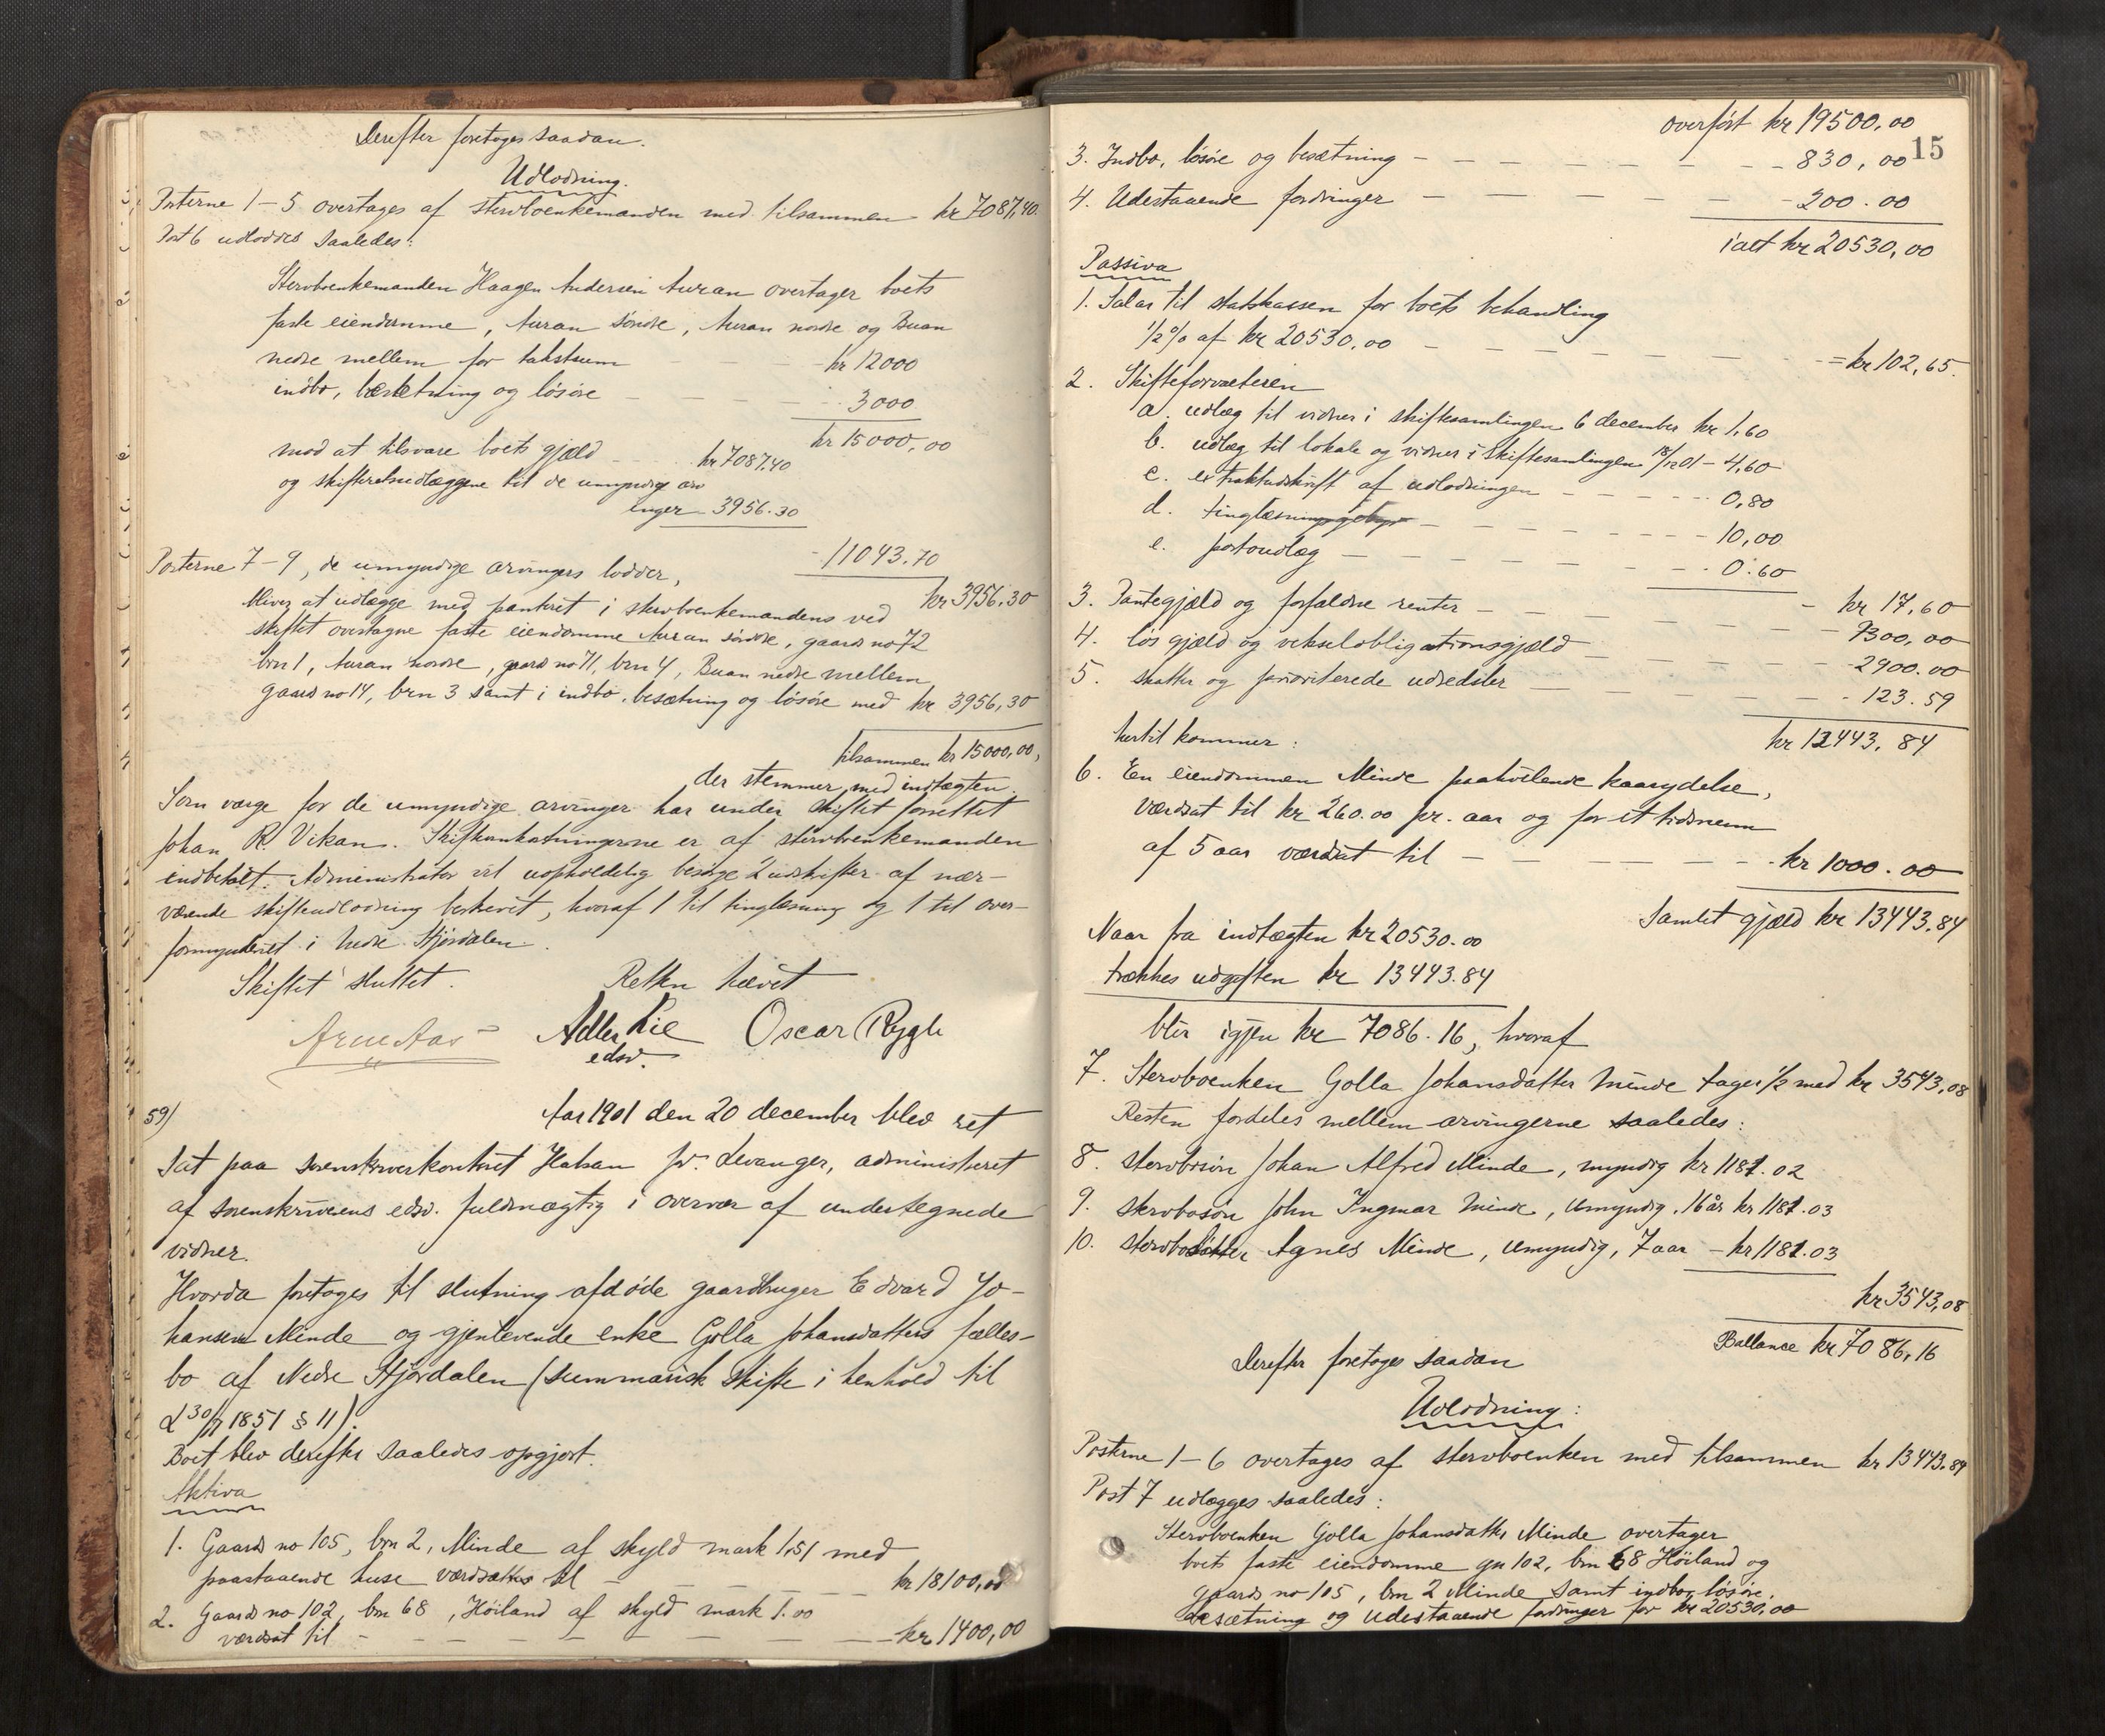 Derefter foretoges saadan.
Udlodning.
Posterne 1-5 overtages af sterboenkemanden med tilsammen kr 7087,40.
Post 6 udloddes saaledes:
Sterboenkemanden Haagen Andersen Auran overtager boets
faste eiendomme, Auran söndre, Auran nordre og Buan
nedre mellem for takstsum - kr 12000
indbo, besætning og lösöre - - - - 3000
kr 15000,00
mod at tilsvare boets gjæld - kr 7087,40
og skifteretsudlæggene til de umyndige arv
inger - 3956.30
- 11043.70
Posterne 7-9, de umyndige arvingers lodder, kr 3956,30
bliver at udlægge med panteret i sterboenkemandens ved
skiftet overtagne faste eiendomme Auran söndre, gaards no 72
brn 1, Auran nordre, gaards no 71, brn 4, Buan nedre mellem
gaards no 14, brn 3 samt i indbo, besætning og lösöre med kr 3956,30
tilsammen kr 15000,00,
der stemmer med indtægten.
Som værge for de umyndige arvinger har under skiftet forrettet
Johan R. Vikan. Skifteomkostningerne er af sterboenkemanden
indbetalt. Administrator vil uopholdelig besörge 2 udskrifter af nær-
værende skifteudlodning beskrevet, hvoraf 1 til tinglæsning og 1 til over-
formynderiet i Nedre Stjördalen.
Skiftet sluttet. Retten hævet
Arne Aas Adler Lie Oscar Rygh
edsv.
59/ Aar 1901 den 20 december blev ret
sat paa sorenskriverkontoret Halsan pr. Levanger, administreret
af sorenskriverens edsv. fuldmægtig i overvær af undertegnede
vidner.
Hvorda foretoges til slutning afdöde gaardbruger Edvard Jo-
hansen Minde og gjenlevende enke Golla Johansdatters fælles-
bo af Nedre Stjördalen (summarisk skifte i henhold til
L 30/7 1851 § 11).
Boet blev derefter saaledes opgjort.
Aktiva
1. Gaards no 105, brn 2, Minde af skyld mark 1,51 med
paastaaende huse værdsattes til - - - - kr 18100,00
2. Gaards no 102, brn 68, Höiland af skyld mark 1.00
værdsat til - - - - - - kr 1400,00
overfört kr 19500,00
15
3. Indbo, lösöre og besætning - - - - - - 830,00
4. Udestaaende fordringer - - - - - 200.00
ialt kr 20530,00
Passiva
1. Salar til statskassen for boets behandling
1/2 % af kr 20530,00 - - - - - - = kr 102,65.
2. Skifteforvalteren
a. udlæg til vidner i skiftesamlingen 6 december kr 1,60
b. udlæg til lokale og vidner i skiftesamlingen 18/12 01 - 4,60
c. extraktudskrift af udlodningen - - - - 0,80
d. tinglæsningsgebyr - - - - - 10,00
e. portoudlæg - - - - - 0.60
- kr 17,60
3. Pantegjæld og forfaldne renter - - - - 9300,00
4. lös gjæld og vekselobligationsgjæld - - - - 2900.00
5. skatter og prioriterede udredsler - - - - 123.59
kr 12443,84
hertil kommer:
6. En eiendommen Minde paahvilende kaarydelse,
værdsat til kr 260.00 pr. aar og for et tidsrum
af 5 aar værdsat til - - - - kr 1000.00
Samlet gjæld kr 13443,84
Naar fra indtægten kr 20530.00
trækkes udgiften kr 13443.84
blir igjen kr 7086.16, hvoraf
7. Sterboenken Golla Johansdatter Minde tager 1/2 med kr 3543,08
Resten fordeles mellem arvingerne saaledes:
8. sterbosön Johan Alfred Minde, myndig kr 1181.02
9. sterbosön John Ingmar Minde, umyndig, 16 år kr 1181.03
10. sterbodatter Agnes Minde, umyndig, 7 aar - kr 1181.03
kr 3543,08
Ballance kr 7086,16
Derefter foretoges saadan
Udlodning:
Posterne 1-6 overtages af sterboenken med tilsammen kr 13443.84
Post 7 udlægges saaledes:
Sterboenken Golla Johansdatter Minde overtager
boets faste eiendomme gn 102, brn 68 Höiland og
gaards no 105, brn 2 Minde samt indbo, lösöre,
besætning og udestaaende fordringer for kr 20530,00